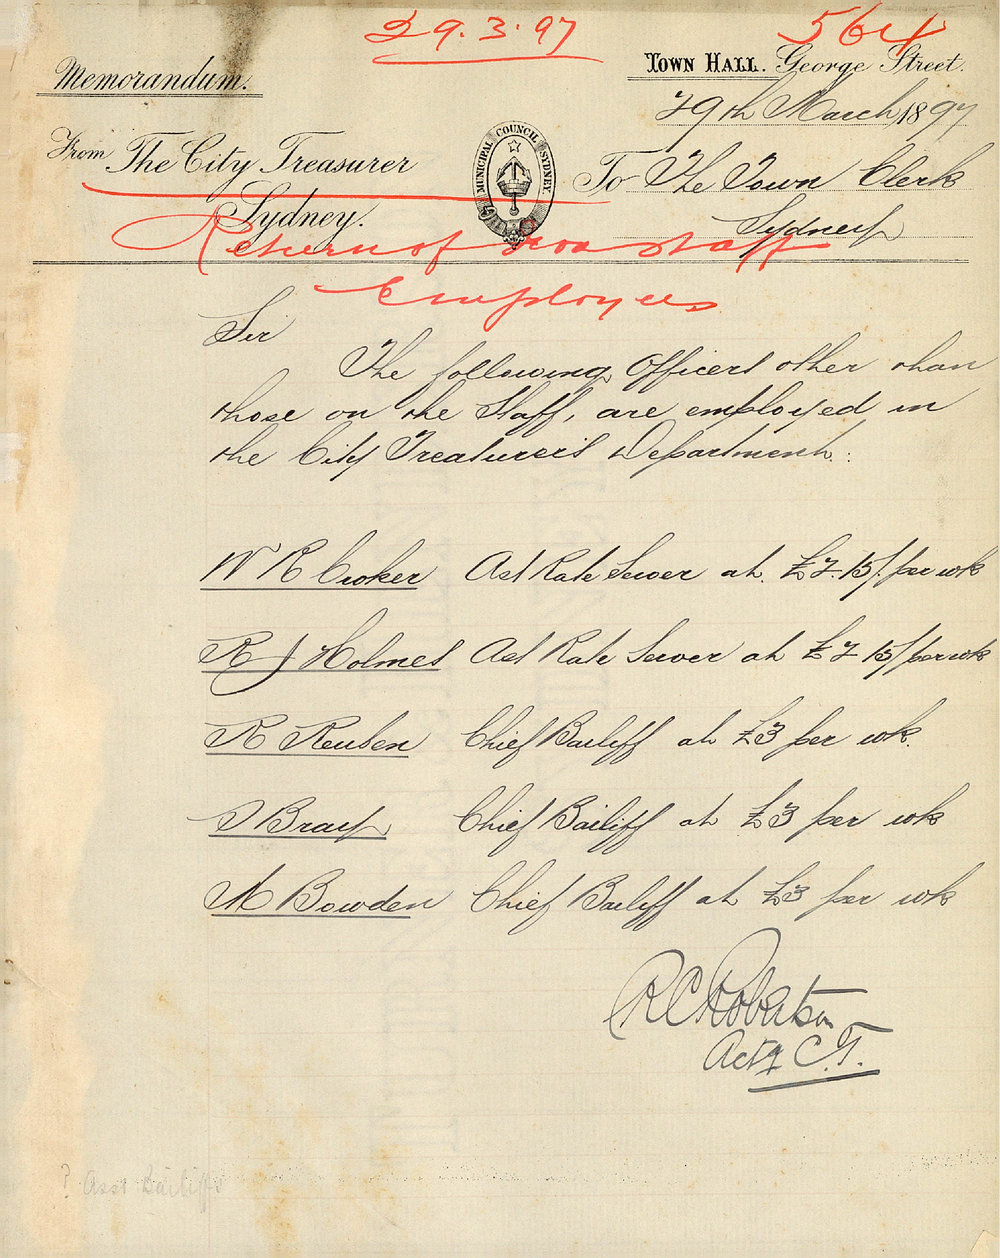 29.3.97
564
Memorandum.
TOWN HALL. George Street.
29th March 1897
From The City Treasurer
Sydney.
MUNICIPAL COUNCIL SYDNEY
To The Town Clerk
Sydney
Return of non staff
Employees
Sir
The following Officers other than
those on the Staff, are employed in
the City Treasurer's Department:
W R Croker Ast Rate Server at £2.15/. per wk
R J Holmes Ast Rate Server at £2 15/ per wk
R Reuben Chief Bailiff at £3 per wk.
J Bray Chief Bailiff at £3 per wk
M Bowden Chief Bailiff at £3 per wk
R C Robertson
Actg C.T.
? Asst Bailiffs